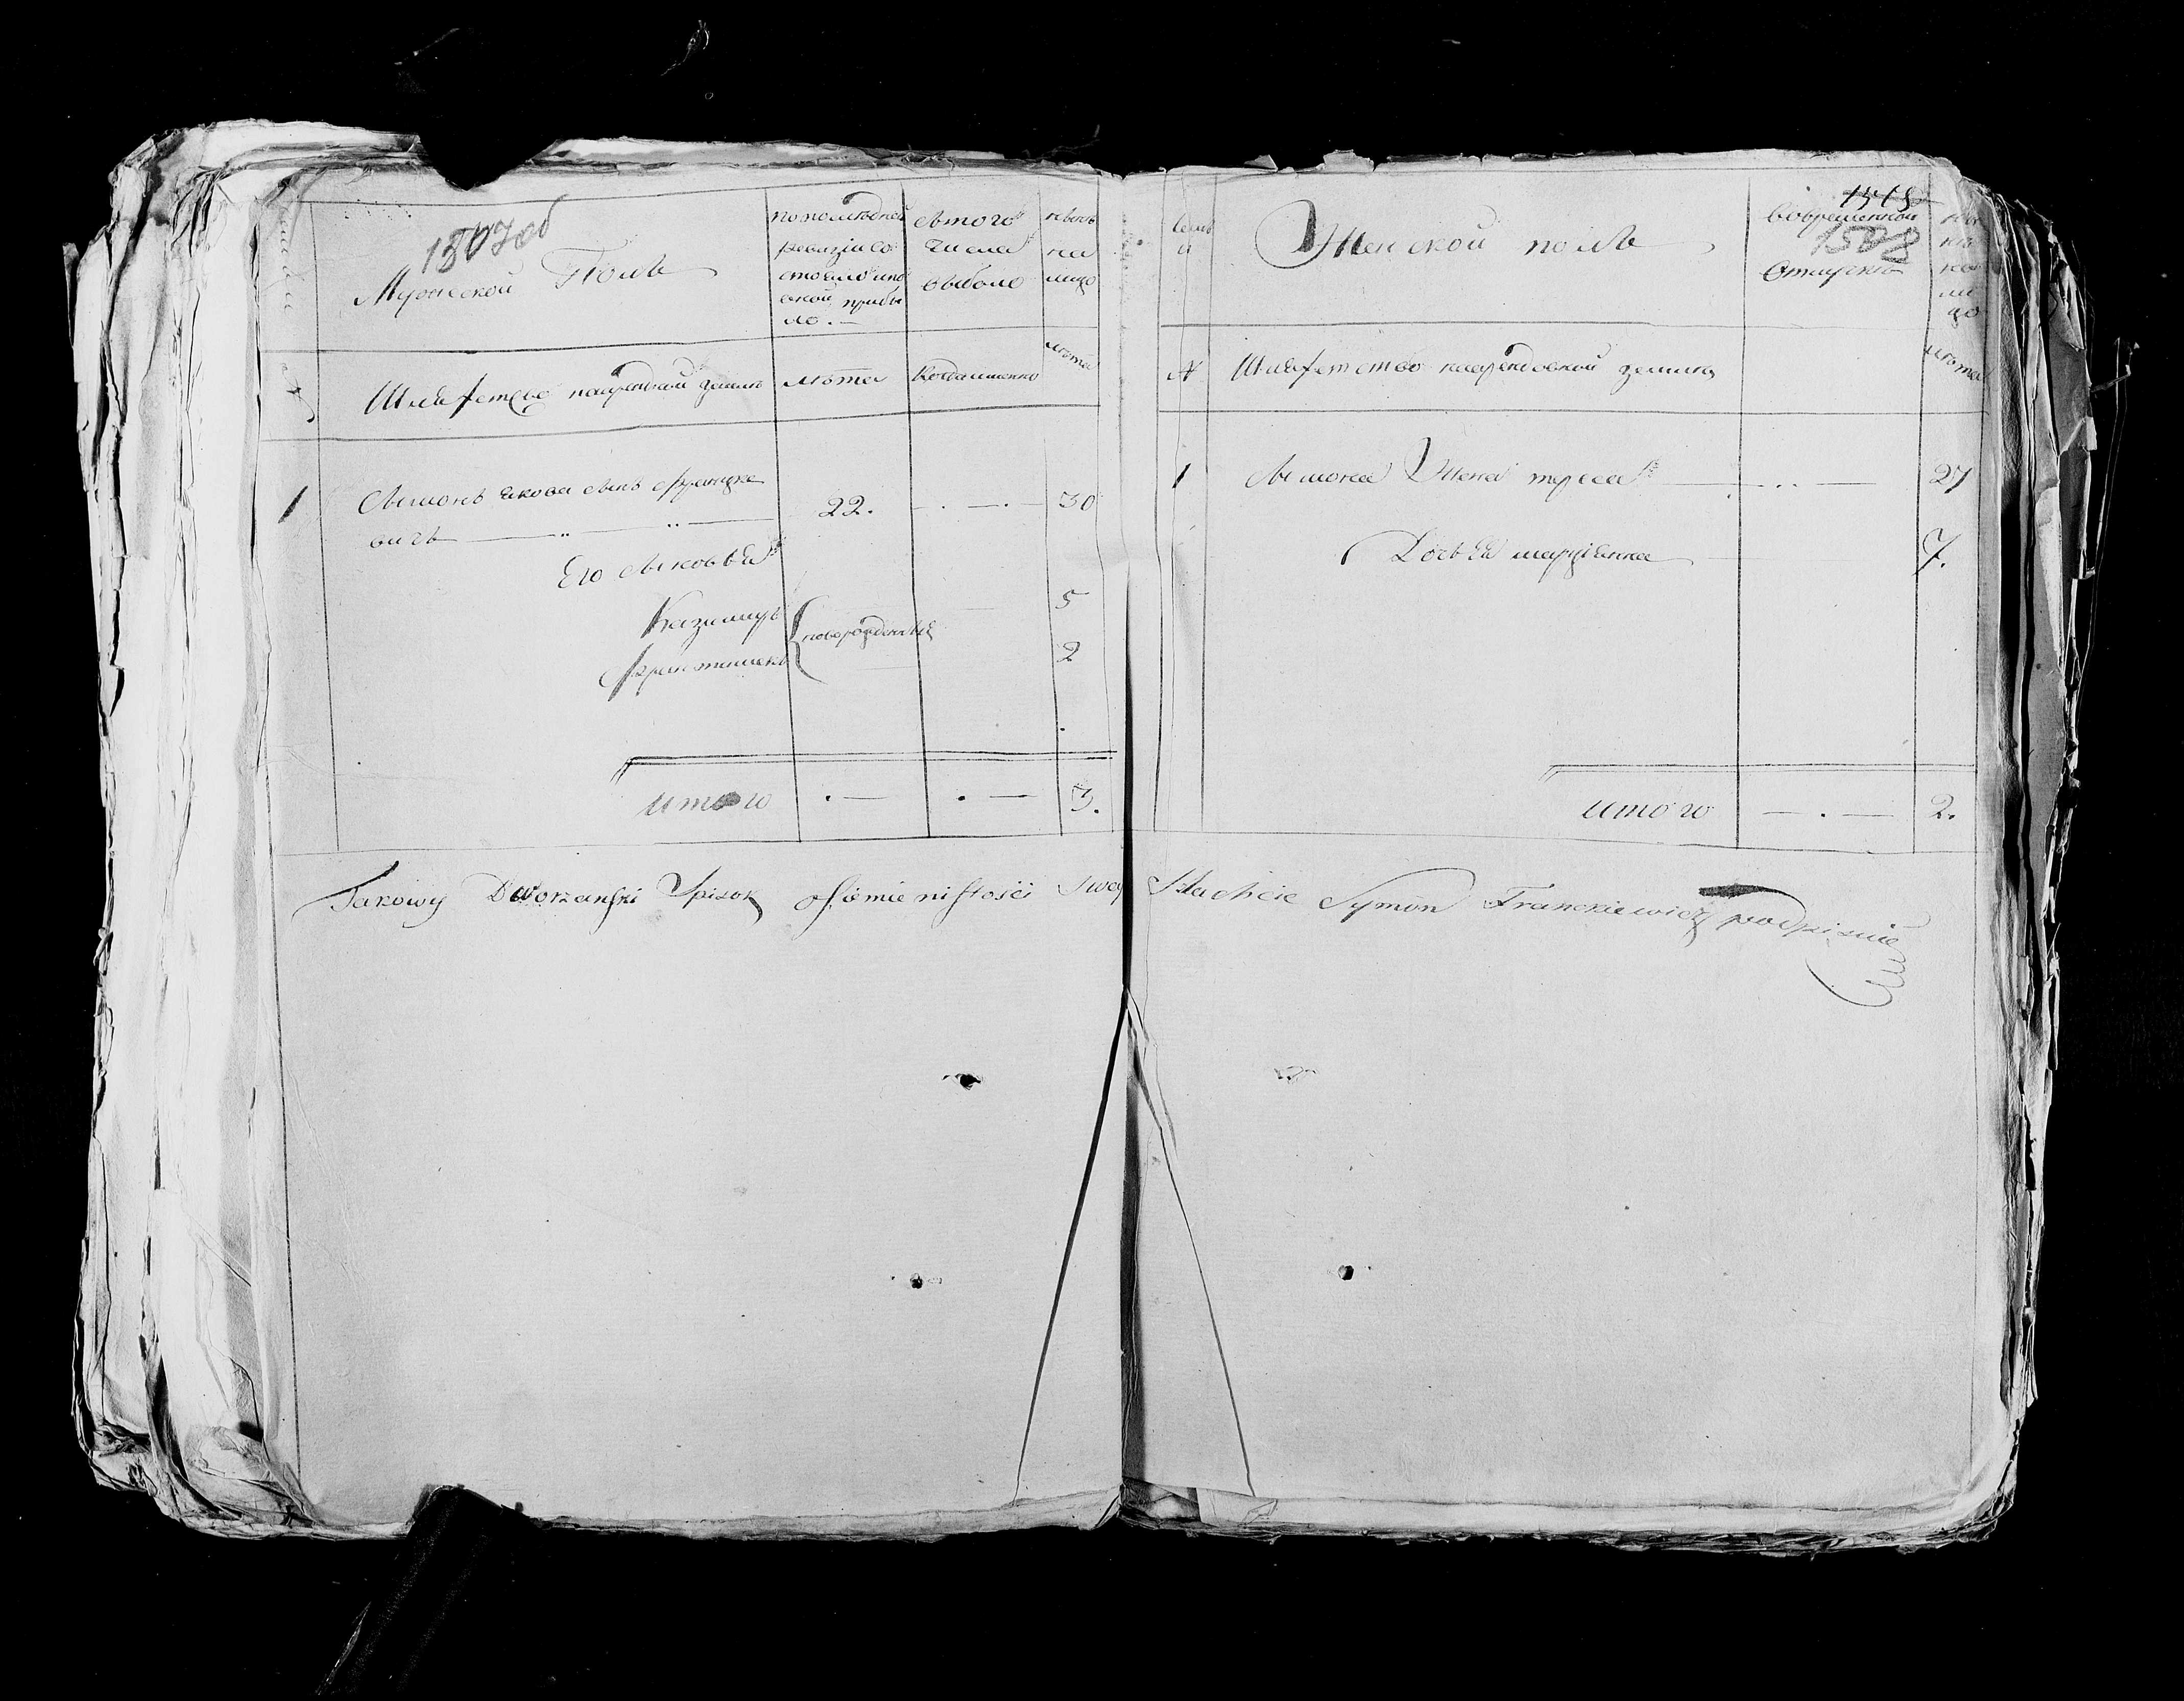 1507об
Мужеской Полъ
по последней
ревизіи со
стояло и по
оной прибы
ло. —
с того
числа
выбыло
нынѣ
на
лицо
Шляхетство на чужой землѣ
лѣта
Когда именно
лѣта
1 Сымонъ Якова сынъ Францке
вичъ — „ — „ — 22. — . — . — 30
Его сыновья
Казимиръ { новорожденные 5
Франтишекъ 2
итого . — . — 3.
семьи
Женской полъ
1508
Во временной
Отлучкѣ
ны
нѣ
на
ли
цо
№ Шляхетство
лѣта
1 Сымона Жена тереса — . . — 27
Дочь Ей марціянна 7.
итого — . — 2.
Takowy Dworzanski Spisok Osiemienistości Swey Szlachcic Symon Franckiewicz podpisuię